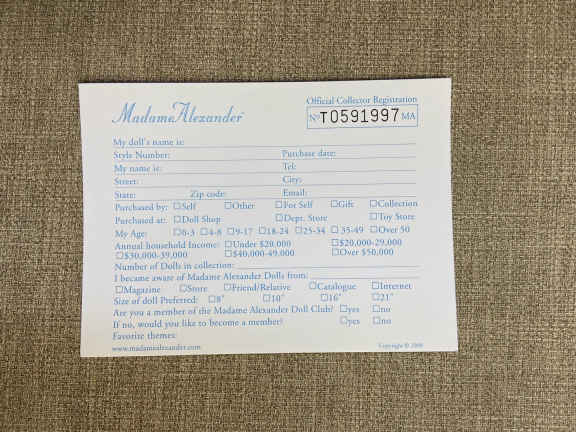 Madame Alexander
Official Collector Registration
No T0591997 MA
My doll's name is:
Style Number: Purchase date:
My name is: Tel:
Street: City:
State: Zip code: Email:
Purchased by: ☐Self ☐Other ☐For Self ☐Gift ☐Collection
Purchased at: ☐Doll Shop ☐Dept. Store ☐Toy Store
My Age: ☐0-3 ☐4-8 ☐9-17 ☐18-24 ☐25-34 ☐35-49 ☐Over 50
Annual household Income: ☐Under $20,000 ☐$20,000-29,000
☐$30,000-39,000 ☐$40,000-49,000 ☐Over $50,000
Number of Dolls in collection:
I became aware of Madame Alexander Dolls from:
☐Magazine ☐Store ☐Friend/Relative ☐Catalogue ☐Internet
Size of doll Preferred: ☐8" ☐10" ☐16" ☐21"
Are you a member of the Madame Alexander Doll Club? ☐yes ☐no
If no, would you like to become a member? ☐yes ☐no
Favorite themes:
www.madamealexander.com Copyright ©